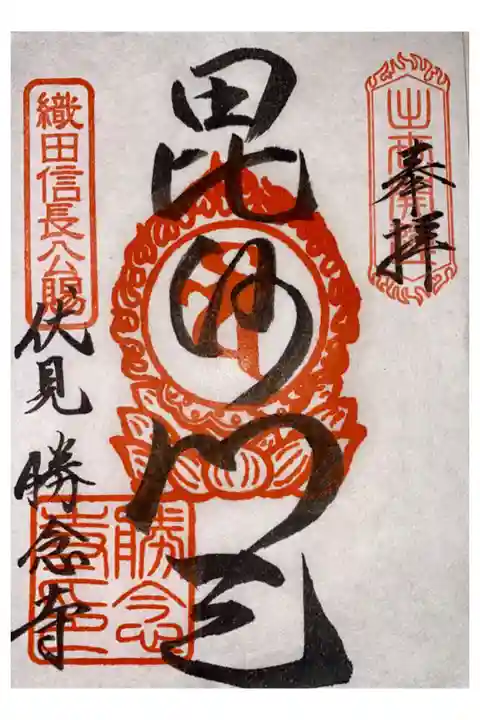 奉拝
毘沙門天
織田信長公賜
伏見 勝念寺
勝念寺印